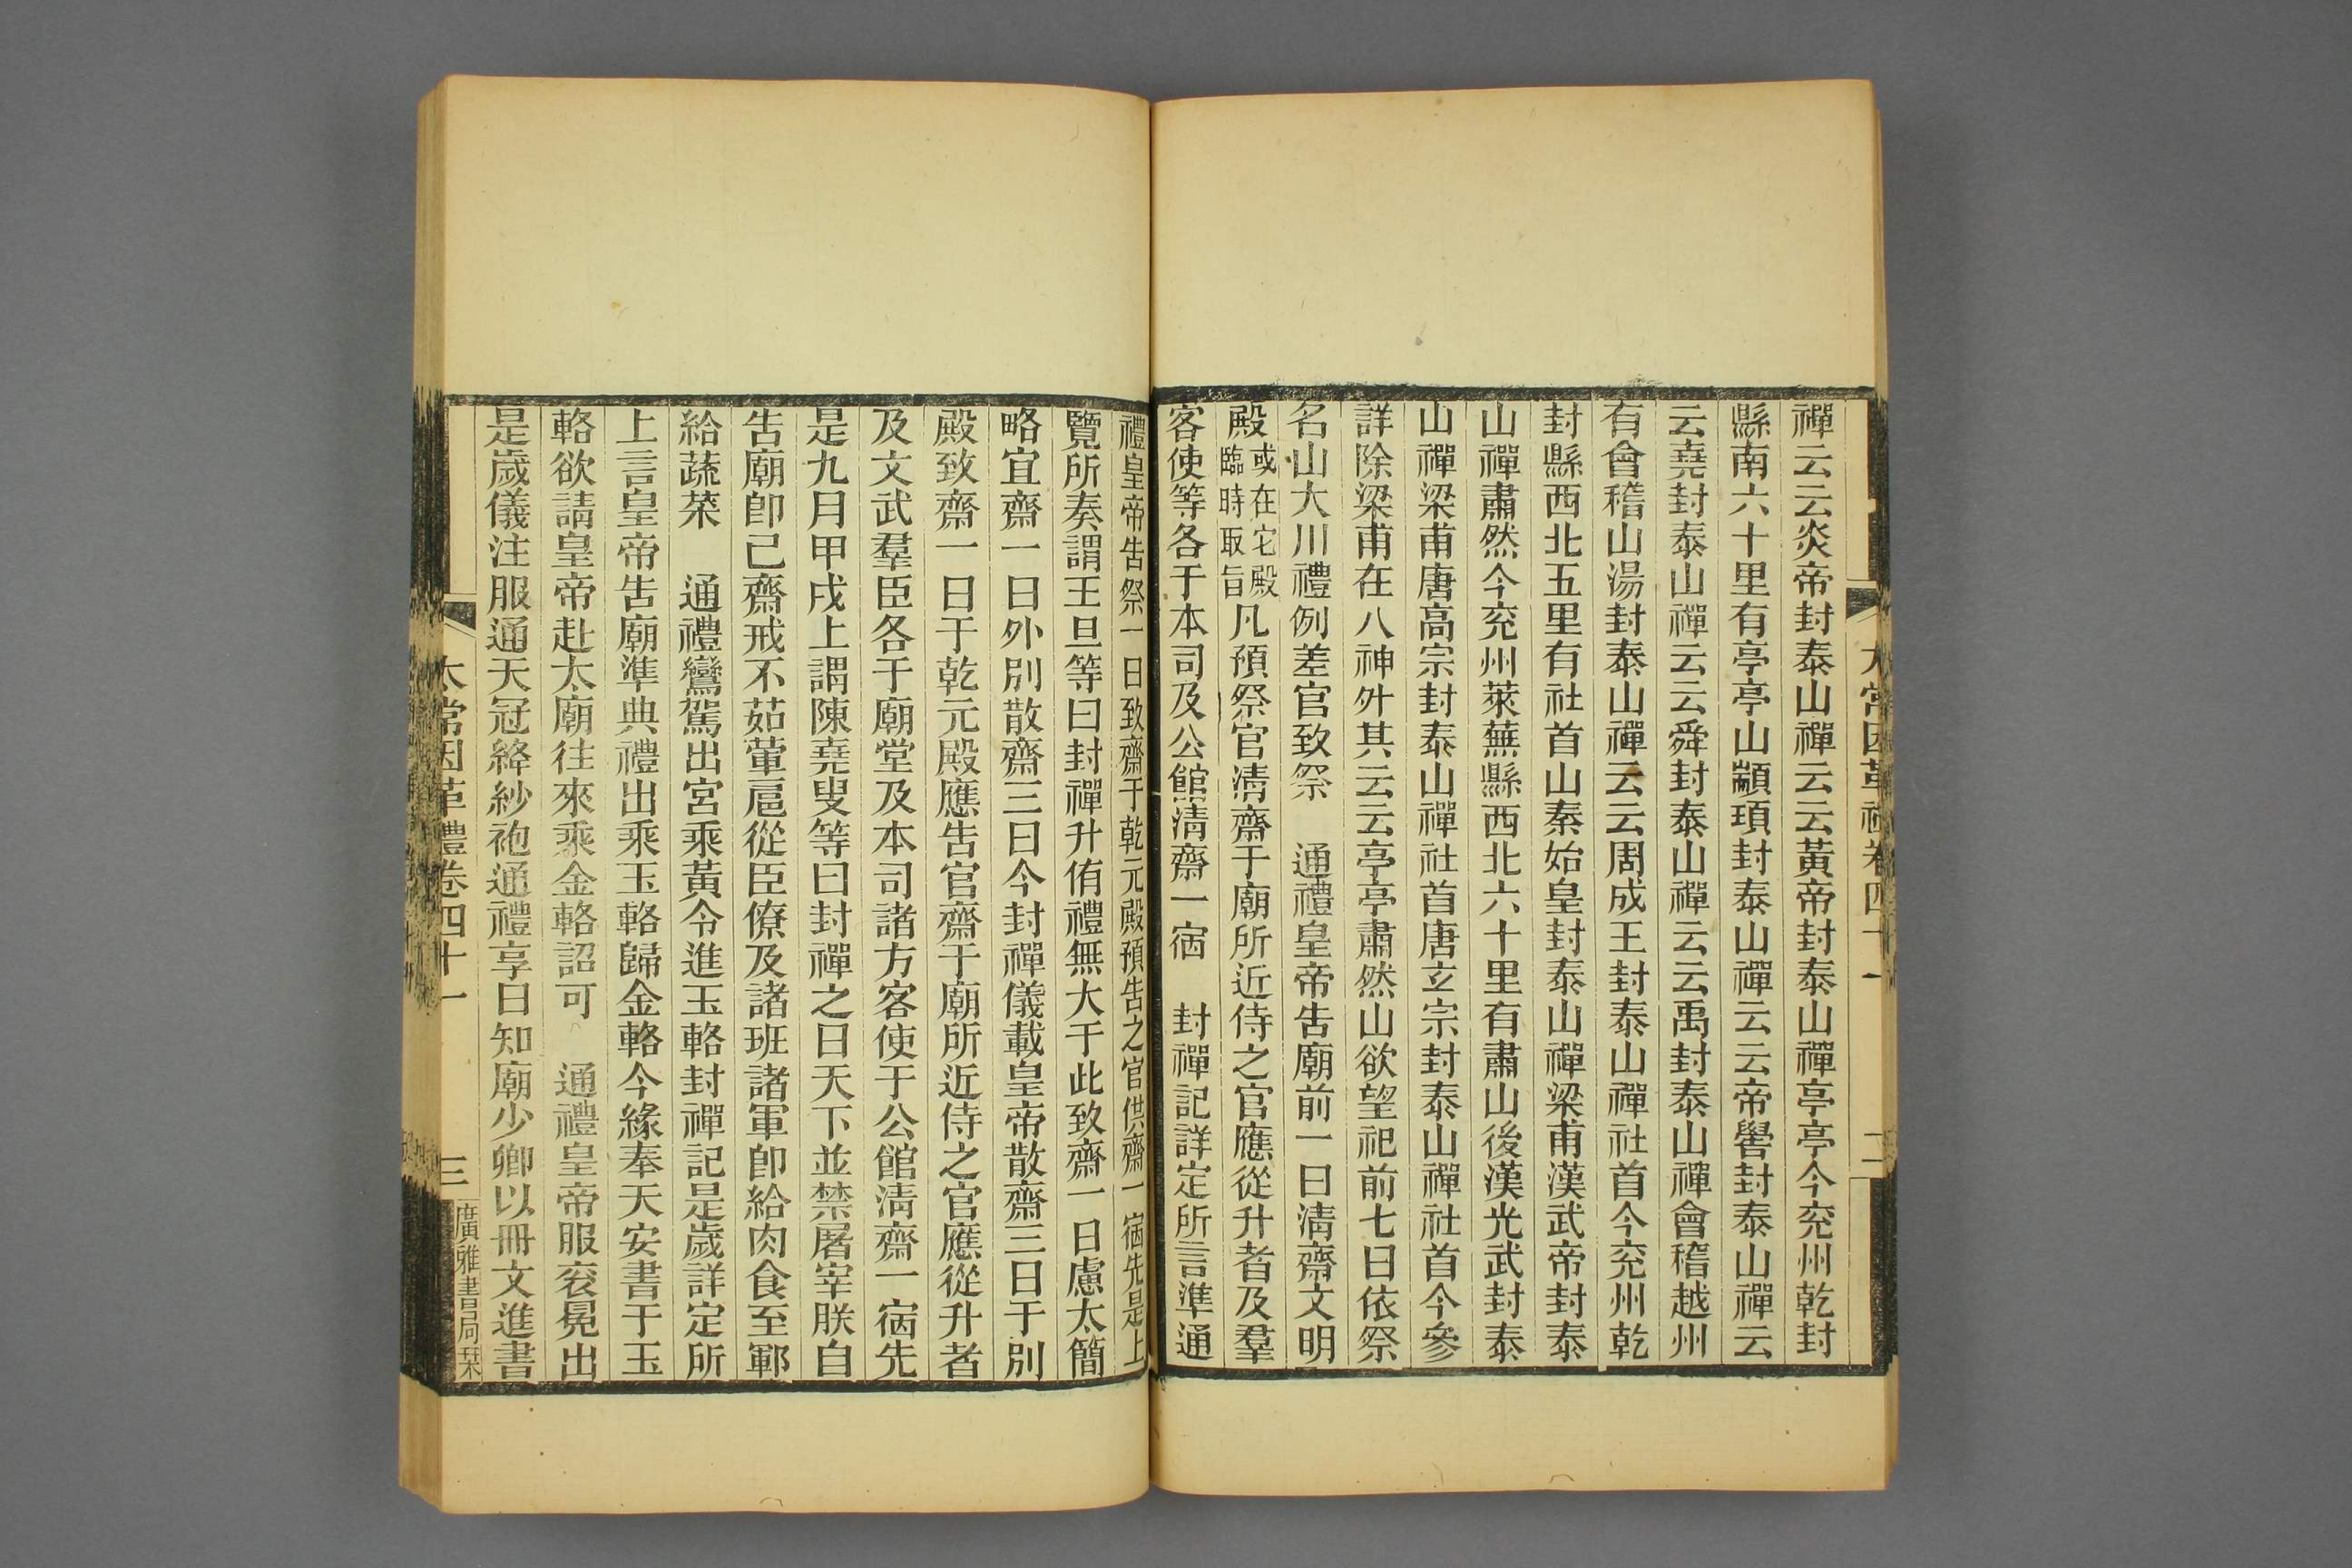 太常因革禮卷四十一
二
禪云云炎帝封泰山禪云云黃帝封泰山禪亭亭今兖州乾封
縣南六十里有亭亭山顓頊封泰山禪云云帝嚳封泰山禪云
云堯封泰山禪云云舜封泰山禪云云禹封泰山禪會稽越州
有會稽山湯封泰山禪云云周成王封泰山禪社首今兖州乾
封縣西北五里有社首山秦始皇封泰山禪梁甫漢武帝封泰
山禪肅然今兖州萊蕪縣西北六十里有肅山後漢光武封泰
山禪梁甫唐高宗封泰山禪社首唐玄宗封泰山禪社首今參
詳除梁甫在八神外其云云亭亭肅然山欲望祀前七日依祭
名山大川禮例差官致祭　通禮皇帝告廟前一日淸齋文明
殿或在它殿臨時取旨凡預祭官淸齋于廟所近侍之官應從升者及羣
客使等各于本司及公館淸齋一宿　封禪記詳定所言準通
禮皇帝告祭一日致齋于乾元殿預告之官供齋一宿先是上
覽所奏謂王旦等曰封禪升侑禮無大于此致齋一日慮太簡
略宜齋一日外別散齋三日今封禪儀載皇帝散齋三日于別
殿致齋一日于乾元殿應告官齋于廟所近侍之官應從升者
及文武羣臣各于廟堂及本司諸方客使于公館淸齋一宿先
是九月甲戌上謂陳堯叟等曰封禪之日天下並禁屠宰朕自
告廟卽已齋戒不茹葷扈從臣僚及諸班諸軍卽給肉食至鄆
給蔬菜　通禮鸞駕出宮乘黃令進玉輅封禪記是歲詳定所
上言皇帝告廟準典禮出乘玉輅歸金輅今緣奉天安書于玉
輅欲請皇帝赴太廟往來乘金輅詔可　通禮皇帝服衮冕出
是歲儀注服通天冠絳紗袍通禮享日知廟少卿以冊文進書
太常因革禮卷四十一
三
廣雅書局栞